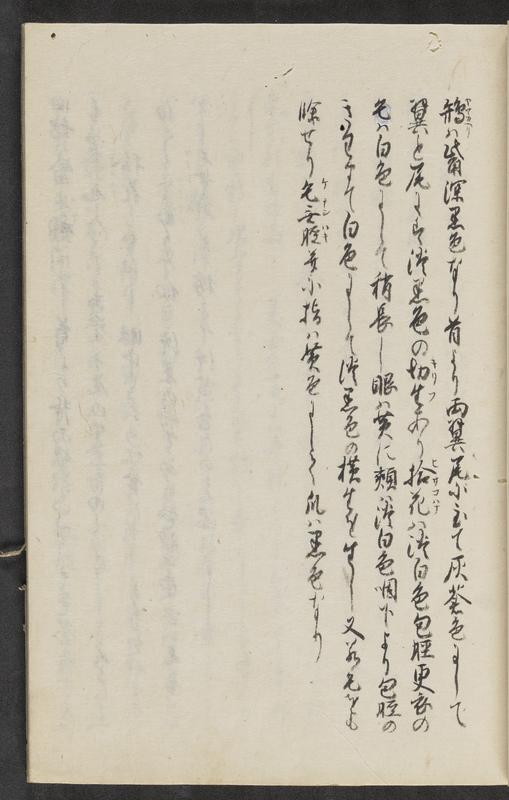 鵇ハ觜深黒色なり首より両翼尾に至て灰蒼色にして
翼と尾にハ淡黒色の切生あり拾花ハ淡白色包脛更衣の
毛ハ白色にして稍長し眼ハ黄に頬ハ淡白色咽下より包脛の
きわまて白色にして淡黒色の横生を生し又若毛をも
除せり毛無脛并小指ハ黄色にして爪ハ黒色なり